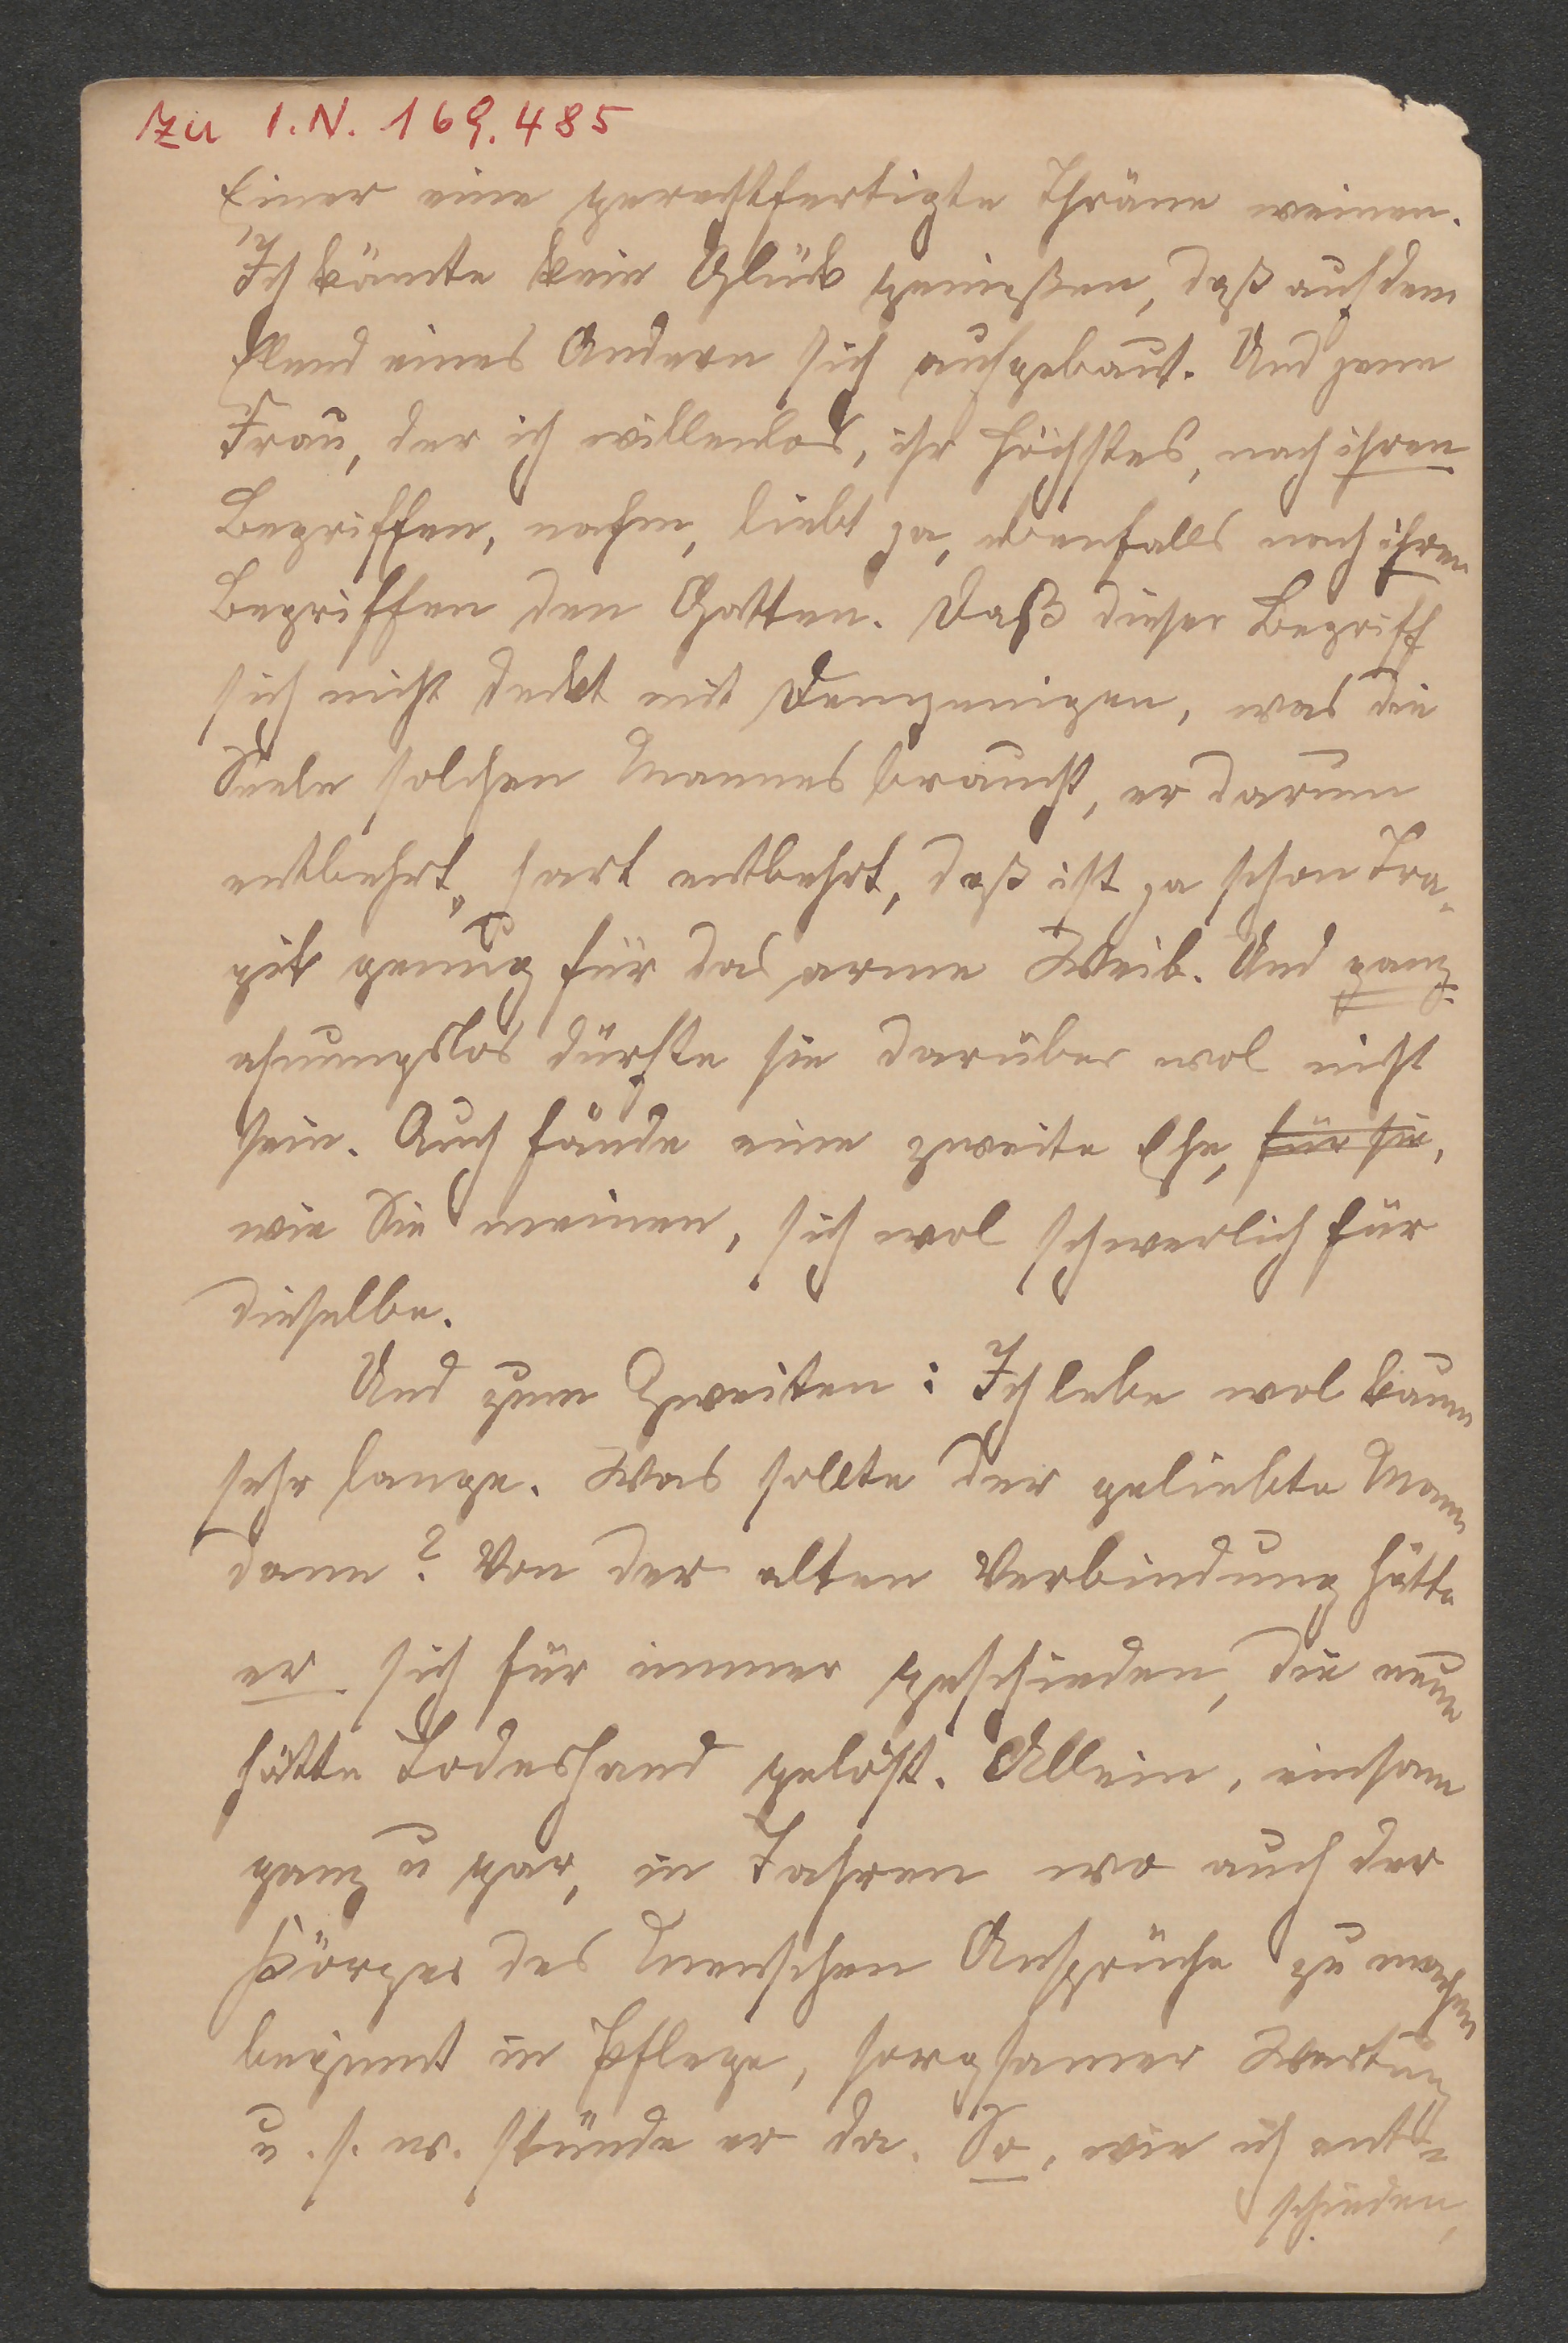 zu I.N. 169.485
Einer eine gerechtfertigte Thräne weinen.
Ich könnte kein Glück genießen, daß auf dem
Elend eines Andern sich aufgebaut. Und jene
Frau, der ich willenlos, ihr Höchstes, nach ihren
Begriffen, nahm, liebt ja, ebenfalls nach ihren
Begriffen den Gatten. Daß dieser Begriff
sich nicht deckt mit Demjenigen, was die
Seele solchen Mannes braucht, er darum
entbehrt, hart entbehrt, daß ist ja schon Tra-
gik genug für das arme Weib. Und ganz
ahnungslos dürfte sie darüber wol nicht
sein. Auch fände eine zweite Ehe, für sie,
wie Sie meinen, sich wol schwerlich für
dieselbe.
Und zum Zweiten: Ich lebe wol kaum
sehr lange. Was sollte der geliebte Mann
dann? Von der alten Verbindung hätte
er sich für immer geschieden, die neue
hätte Todeshand gelöst. Allein, einsam
ganz u gar, in Jahren wo auch der
Körper des Menschen Ansprüche zu machen
beginnt in Pflege, sorgsamer Wartung
u. s. w. stünde er da. So, wie ich ent-
schieden,